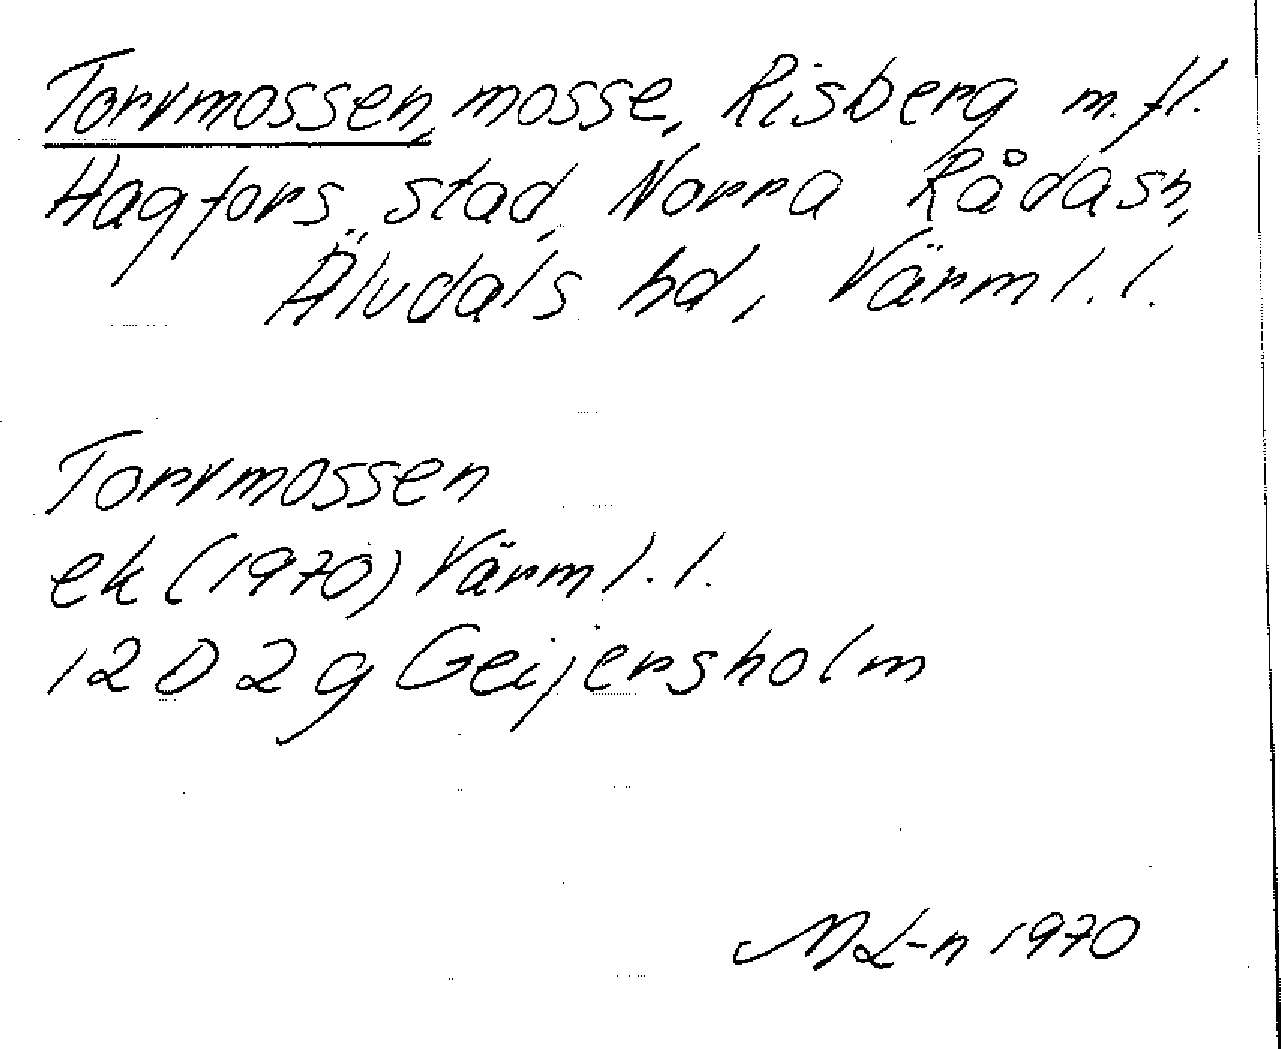 Torvmossen, mosse, Risberg m.fl.
Hagfors stad, Norra Rådasn,
Älvdals hd, Värml.l.
Torvmossen
ek (1970) Värml.l.
12D 2g Geijersholm
ML-n 1970